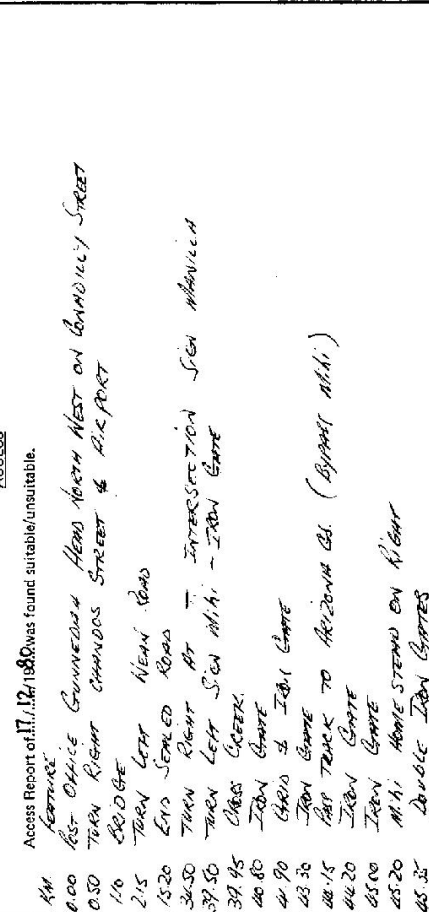 ACCESS
Access Report of 17/12/1980 was found suitable/unsuitable.
KM. FEATURE
0.00 POST OFFICE GUNNEDAH HEAD NORTH WEST ON CONADILLY STREET
0.50 TURN RIGHT CHANDOS STREET & AIRPORT
1.10 BRIDGE
2.15 TURN LEFT KEAN ROAD
15.20 END SEALED ROAD
34.50 TURN RIGHT AT T INTERSECTION SIGN MANILLA
39.50 TURN LEFT SIGN Mihi - IRON GATE
39.95 CROSS CREEK.
40.80 IRON GATE
41.90 GRID & IRON GATE
43.30 IRON GATE
44.15 PASS TRACK TO ARIZONA GS. (BYPASS Mihi)
44.20 IRON GATE
45.00 IRON GATE
45.20 Mihi HOMESTEAD ON RIGHT
45.35 DOUBLE IRON GATES